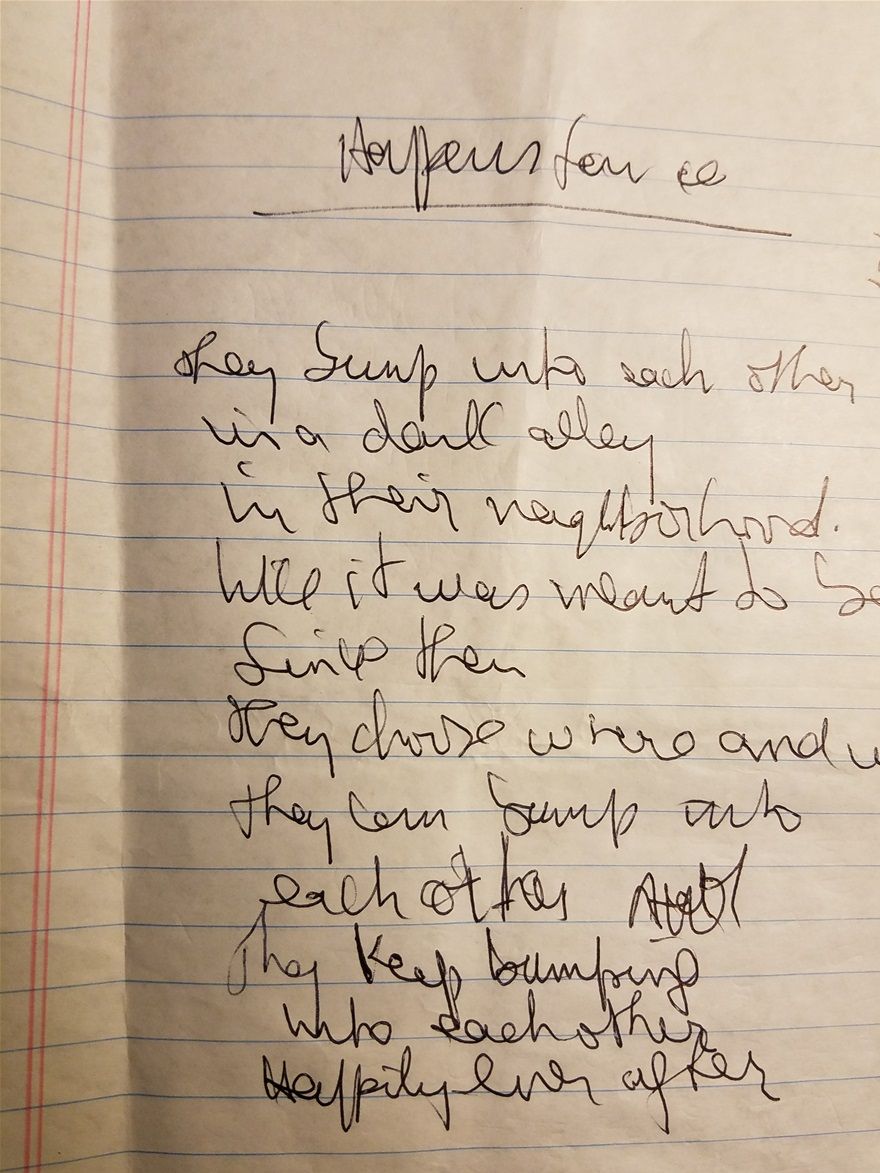 Happenstance
They bump into each other
in a dark alley
in their neighborhood.
like it was meant to be
Since then
they choose where and
they can bump into
each other
They keep bumping
into each other
Happily ever after